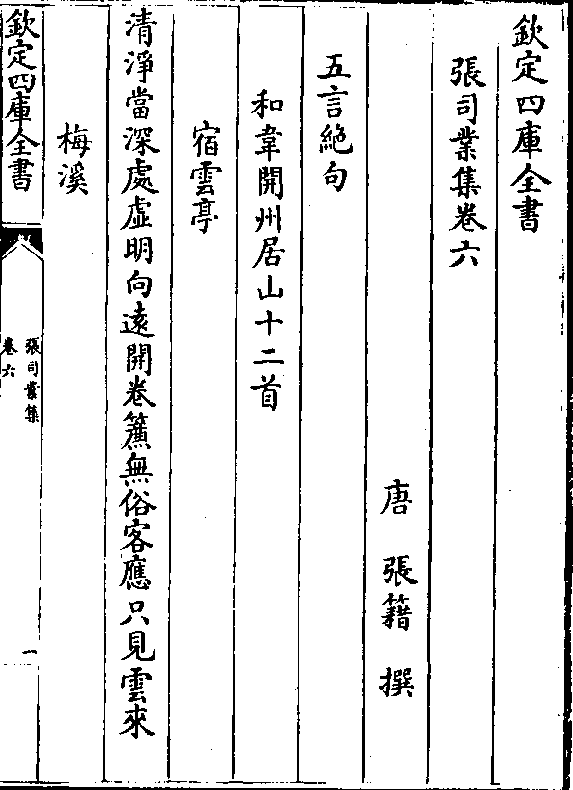 欽定四庫全書
張司業集卷六
唐 張籍 撰
五言絶句
和韋開州居山十二首
宿雲亭
清淨當深處虛明向遠開卷簾無俗客應只見雲來
梅溪
欽定四庫全書
張司業集
卷六
一